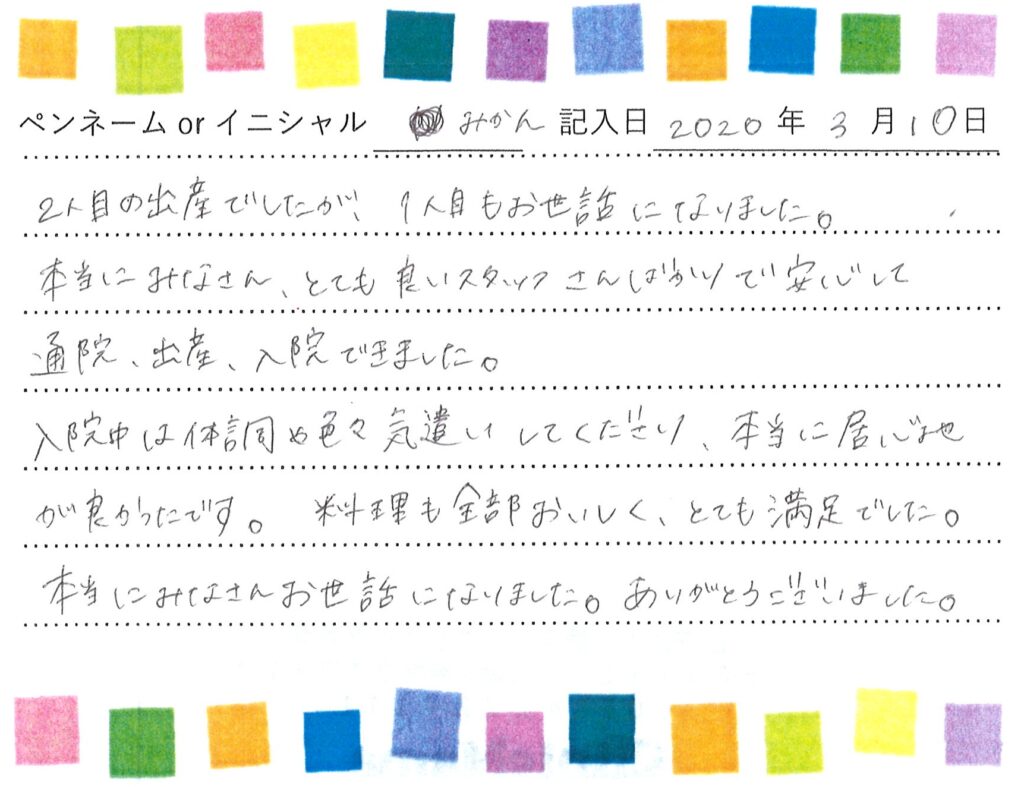 ペンネーム or イニシャル みかん 記入日 2020 年 3 月 10 日
2人目の出産でしたが、1人目もお世話になりました。
本当にみなさん、とても良いスタッフさんばかりで安心して
通院、出産、入院できました。
入院中は体調や色々気遣いしてくださり、本当に居心地
が良かったです。 料理も全部おいしく、とても満足でした。
本当にみなさんお世話になりました。ありがとうございました。